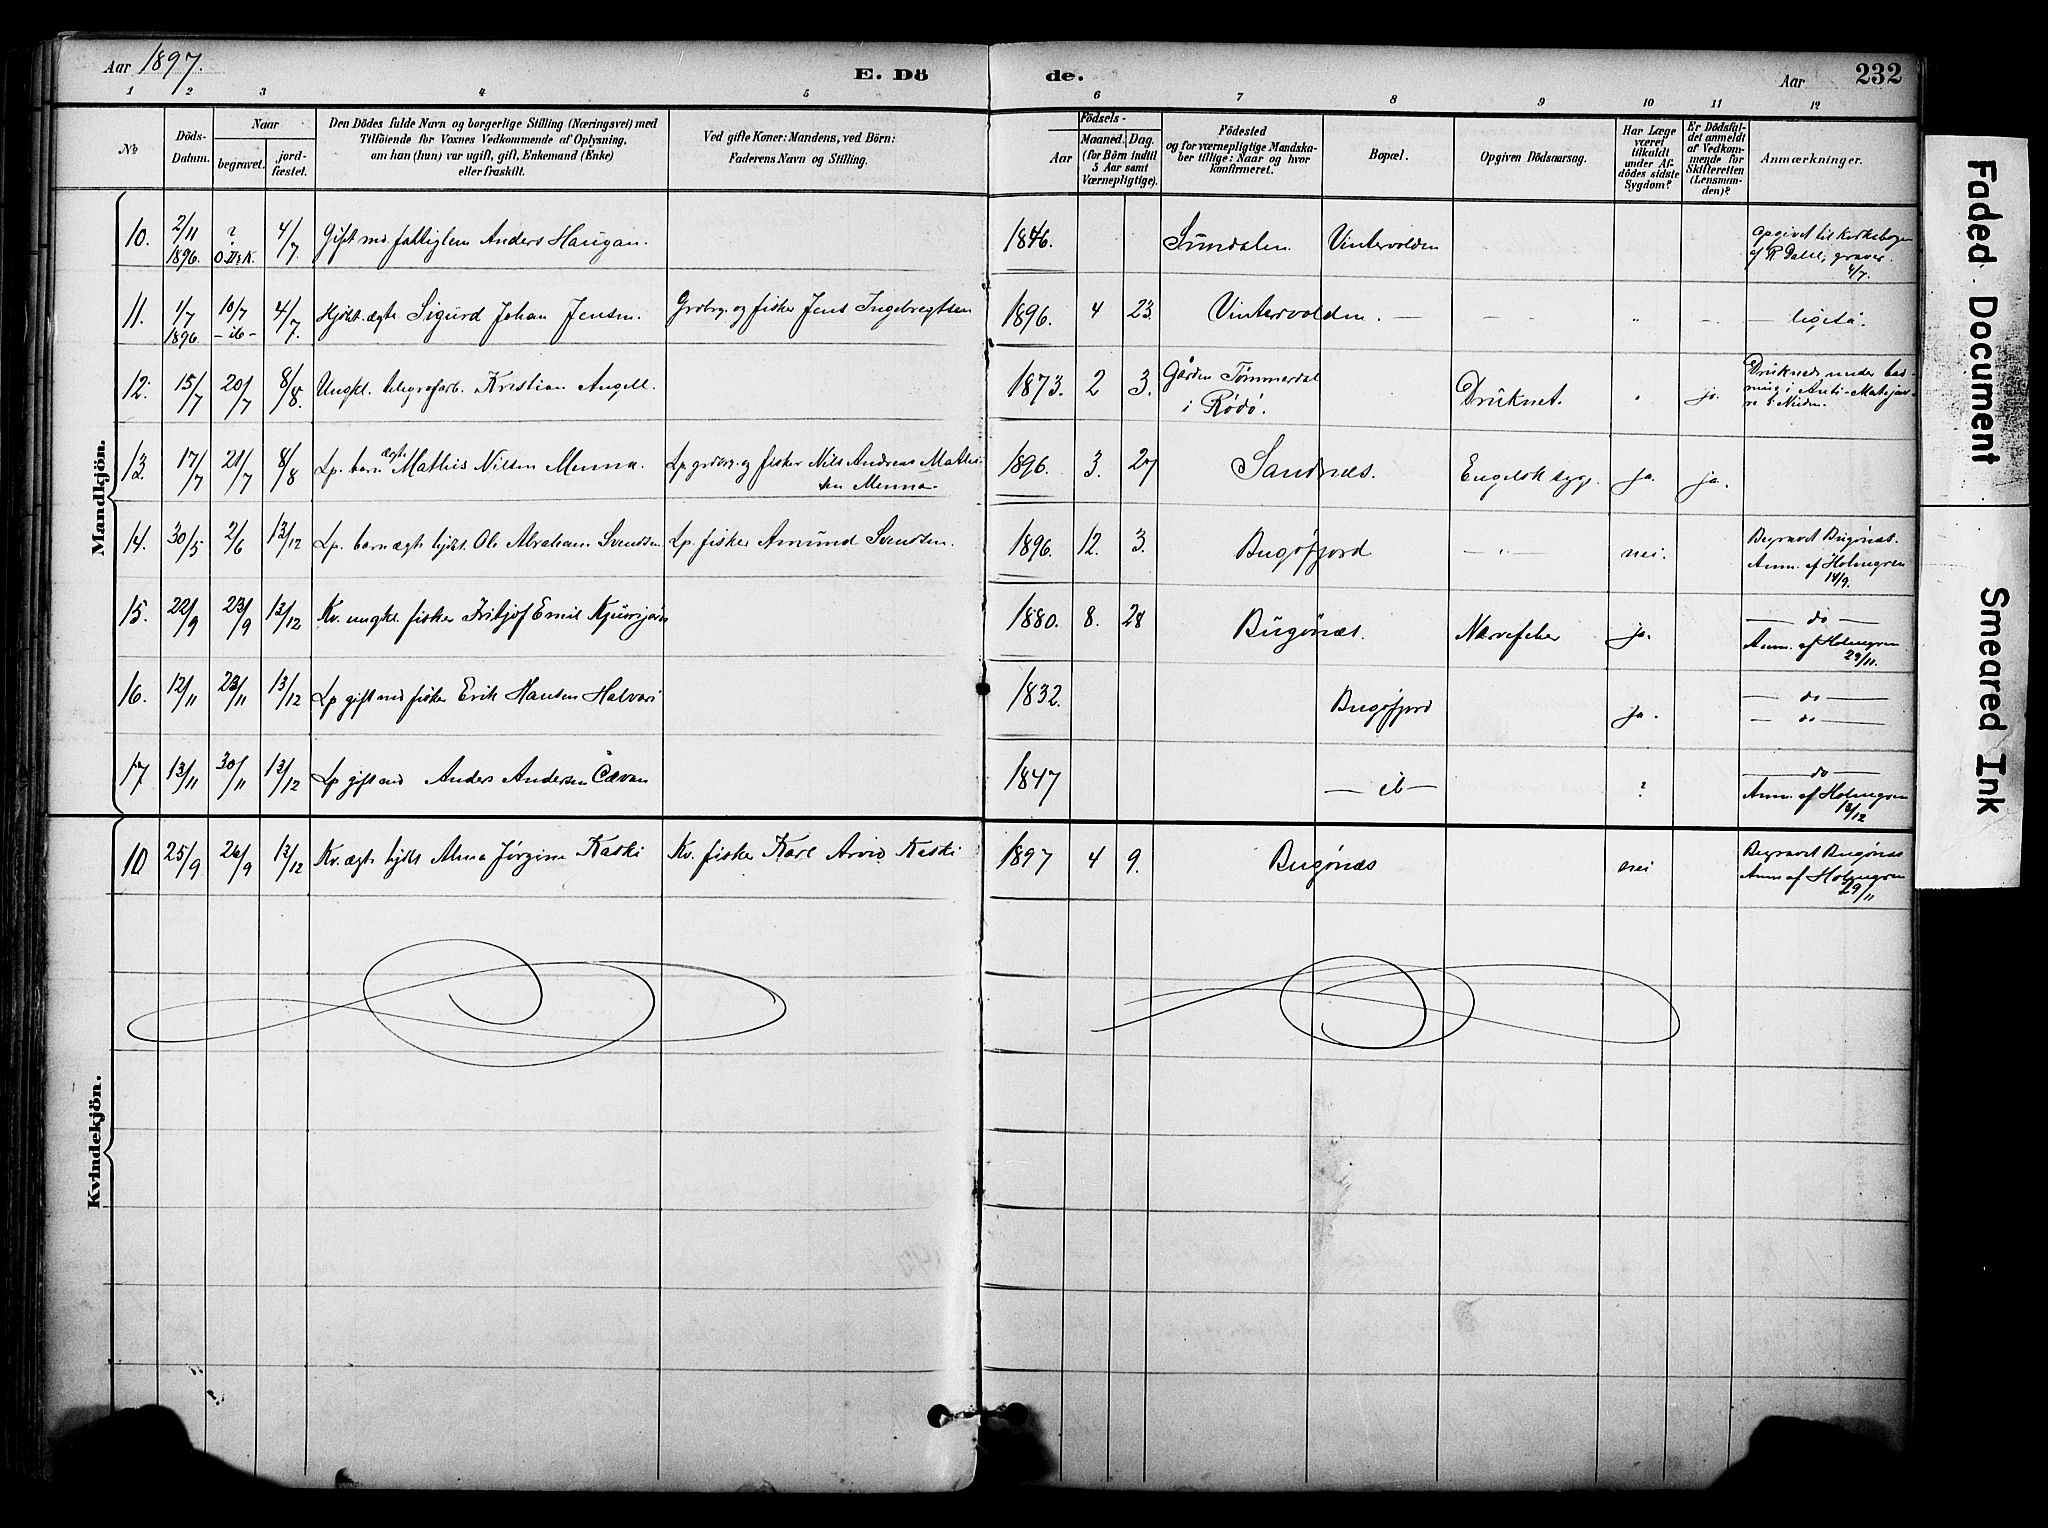 Aar 1897.
E. Dö de.
Aar 232
1 2 3 4 5 6 7 8 9 10 11 12
No
Döds-Datum.
Naar
begravet.
jord-fæstet.
Den Dödes fulde Navn og borgerlige Stilling (Næringsvei) med
Tilföiende for Voxnes Vedkommende af Oplysning,
om han (hun) var ugift, gift, Enkemand (Enke)
eller fraskilt.
Ved gifte Koner: Mandens, ved Börn:
Faderens Navn og Stilling.
Födsels-
Aar
Maaned. Dag.
(for Börn indtil
5 Aar samt
Værnepligtige).
Födested
og for værnepligtige Mandska-
ber tillige: Naar og hvor
konfirmeret.
Bopæl.
Opgiven Dödsaarsag.
Har Læge
været
tilkaldt
under Af-
dödes sidste
Sygdom?
Er Dödsfal-
det anmeldt
af Vedkom-
mende for
Skifteretten
(Lensman-
den)?
Anmærkninger.
Mandkjön.
10. 2/11 1896. ? 4/7 Gift md. fattiglem Anders Haugan. 1846. Sundalen Vintervolden opgivet til kirkebogen af R Dahl, graver 4/7.
11. 1/7 1896 10/7 - ib - 4/7. Hjdbt. ægte Sigurd Johan Jensen. Grdbrg. og fisker Jens Ingebregtsen 1896. 4 23. Vintervolden. — — — " — ligeså.
12. 15/7 20/7 8/8. Ungkl. telegrafarb. Kristian Angell. 1873. 2 3. Gården Tømmerdal i Rødø. Druknet. " ja. Druknede under
13. 17/7 21/7 8/8 Lp. barn ægte Mathis Nilsen Menna. Lp. grdbrg. og fisker Nils Andreas Mathisen Menna. 1896. 3. 27 Sandnes. Engelsk syge. ja. ja.
14. 30/5 2/6 13/12 Lp. barn ægte hjdbt. Ole Abraham Svendsen. Lp. fisker Amund Svendsen. 1896. 12. 3. Bugøfjord — " — nei. Begravet Bugönæs. Anm. af Holmgren 14/9.
15. 22/9 23/9 13/12 Kv. ungkl. fisker Fritjof Emil 1880. 8. 28 Bugönæs. Nervefeber ja. — do — Anm. af Holmgren 29/11.
16. 12/11 23/11 13/12 Lp gift md fisker Erik Hansen Halvari 1832. Bugøfjord ja. — do — — do —
17 13/11 30/11 13/12 Lp gift md Anders Andersen 1847 — ib — ? — do — Anm. af Holmgren 13/12
Kvindekjön.
10 25/9 26/9 13/12 Kv. ægte hjdbt Alma Jørgine Kaski Kv. fisker Karl Arvid Kaski 1897 4 9. Bugönæs nei Begravet Bugönæs Anm af Holmgren 29/11
Faded Document
Smeared Ink